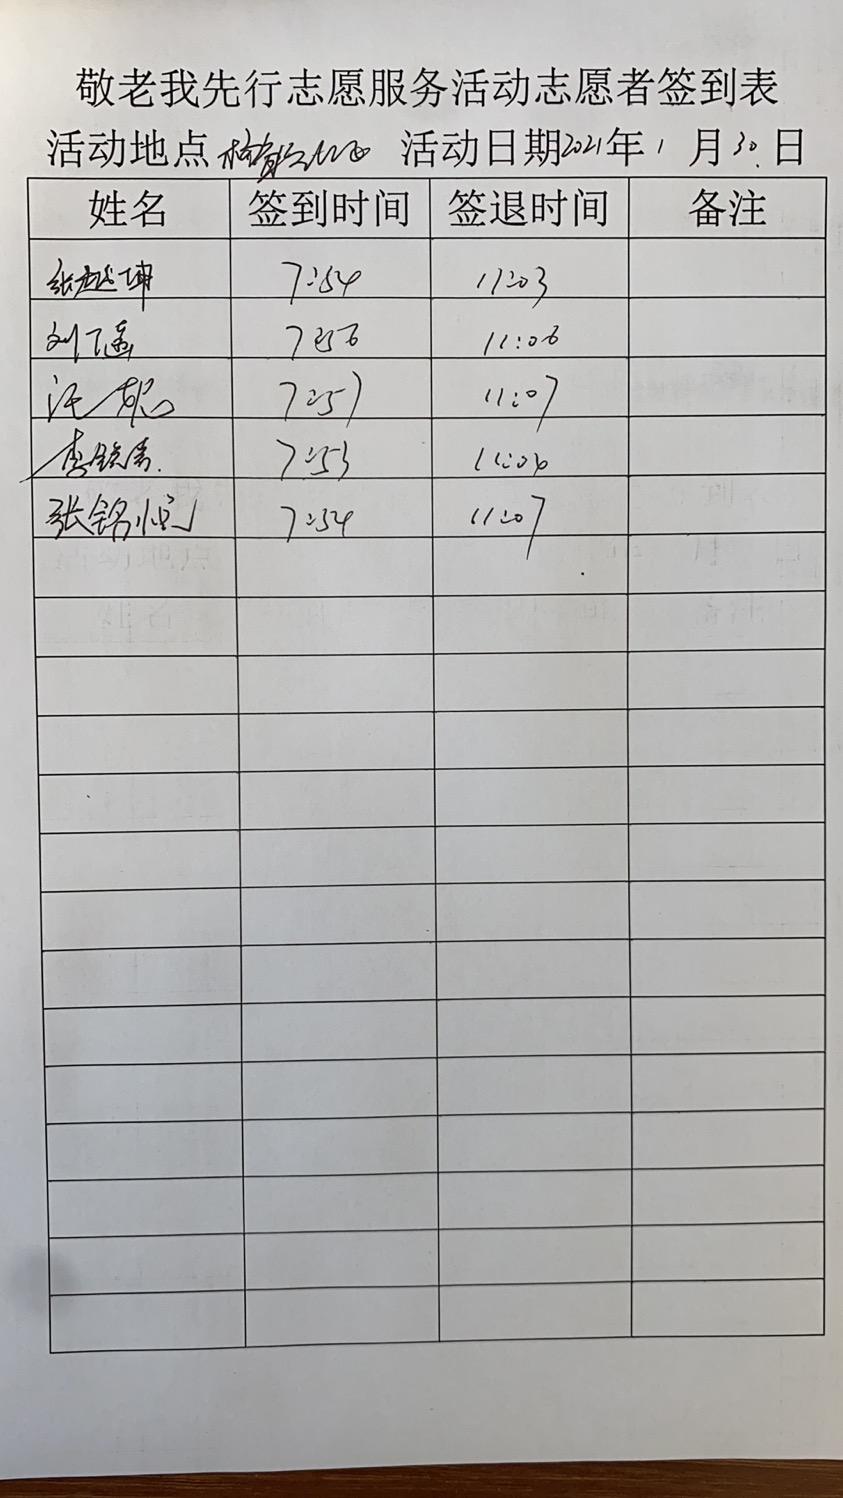 敬老我先行志愿服务活动志愿者签到表
活动地点 活动日期2021年1月30日
姓名 签到时间 签退时间 备注
张越坤 7:54 11:03
刘 7:56 11:06
汪聪 7:57 11:07
李 7:53 11:06
张铭恒 7:54 11:07